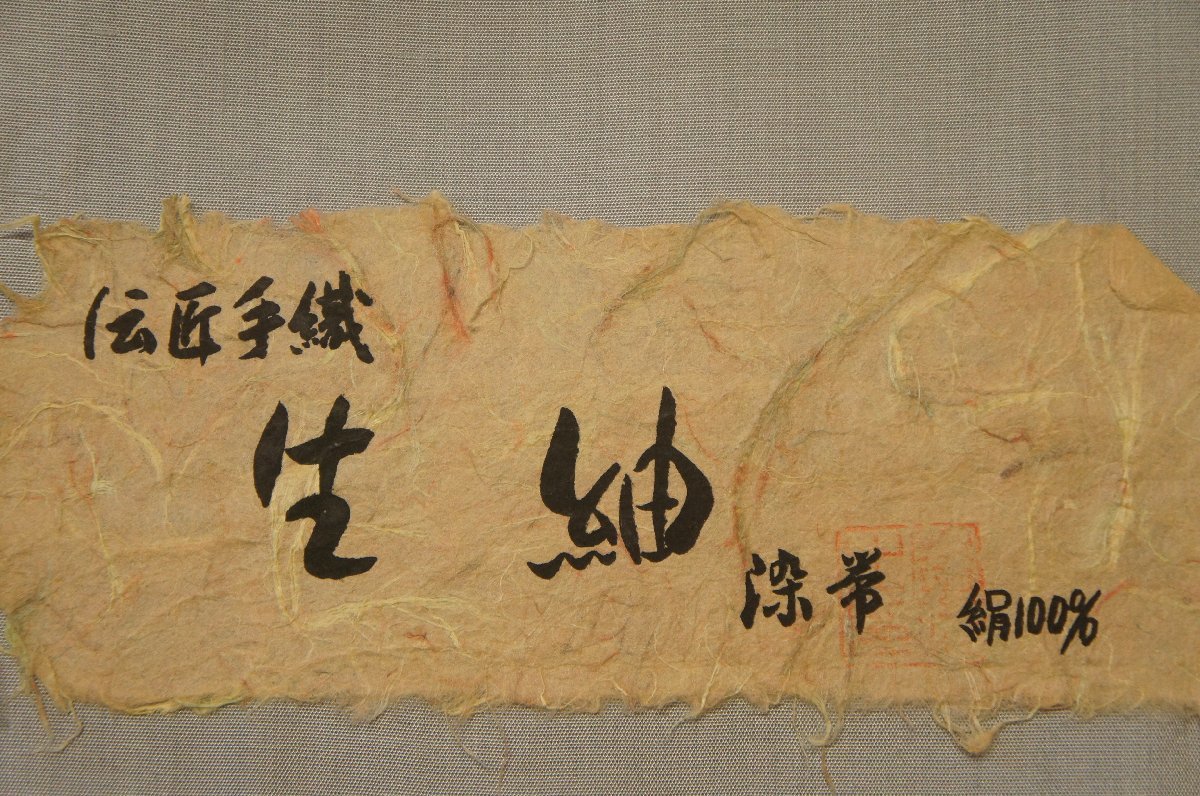 伝匠手織
生紬
染帯
絹100%